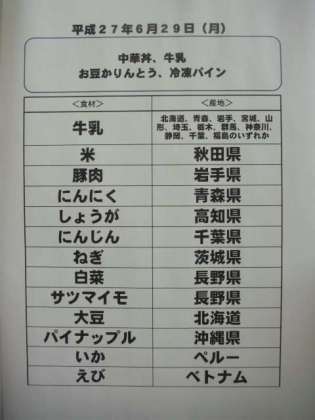 平成２７年６月２９日（月）
中華丼、牛乳
お豆かりんとう、冷凍パイン
＜食材＞ ＜産地＞
牛乳 北海道、青森、岩手、宮城、山
形、埼玉、栃木、群馬、神奈川、
静岡、千葉、福島のいずれか
米 秋田県
豚肉 岩手県
にんにく 青森県
しょうが 高知県
にんじん 千葉県
ねぎ 茨城県
白菜 長野県
サツマイモ 長野県
大豆 北海道
パイナップル 沖縄県
いか ペルー
えび ベトナム